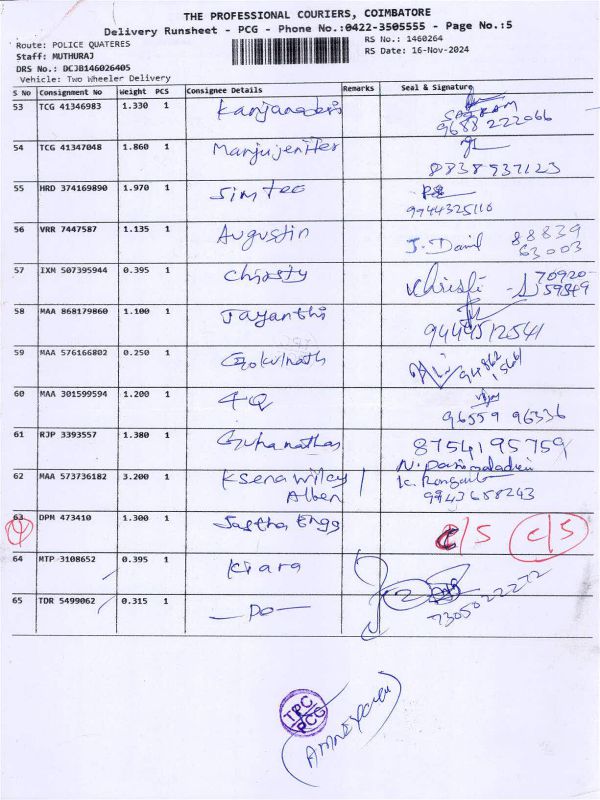 THE PROFESSIONAL COURIERS, COIMBATORE
Delivery Runsheet - PCG - Phone No.:0422-3505555 - Page No.:5
Route: POLICE QUATERES
RS No.: 1460264
Staff: MUTHURAJ
RS Date: 16-Nov-2024
DRS No.: DCJB146026405
Vehicle: Two Wheeler Delivery
S No Consignment No Weight PCS Consignee Details Remarks Seal & Signature
53 TCG 41346983 1.330 1 Kanjanadevi
9688 222066
54 TCG 41347048 1.860 1 Manjujenifer
8838937123
55 HRD 374169890 1.970 1 Simtec
9944325110
56 VRR 7447587 1.135 1 Augustin J. David 88839
63003
57 IXM 507395944 0.395 1 Christy Christi 70920-
59849
58 MAA 868179860 1.100 1 Jayanthi
9444512541
59 MAA 576166802 0.250 1 Gokulnath
60 MAA 301599594 1.200 1 4Q
96559 96336
61 RJP 3393557 1.380 1 Guhanathan 8754195759
62 MAA 573736182 3.200 1 Ksena wilcy
Alben
9943688243
63 DPM 473410 1.300 1 Sastha Engg C/S C/S
64 MTP 3108652 0.395 1 Kiara
65 TDR 5499062 0.315 1 —Do— 7305022272
TPC
PCG